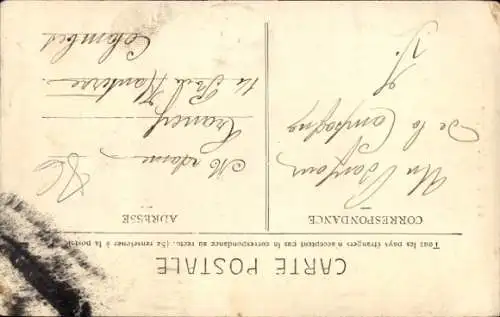 CARTE POSTALE
Tous les pays étrangers n'acceptent pas la correspondance au recto. (Se renseigner à la poste)
CORRESPONDANCE
Un Bonjour
De la
Campagne
J.
ADRESSE
86
Madame
Rue de Nanterre
Colombes